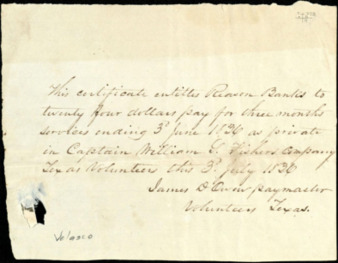 This certificate entitles Reason Banks to
twenty four dollars pay for three months
services ending 3d June 1836 as private
in Captain William S. Fishers Company
Texas Volunteers this 3d July 1836
James D Owen paymaster
Volunteers Texas.
Velasco